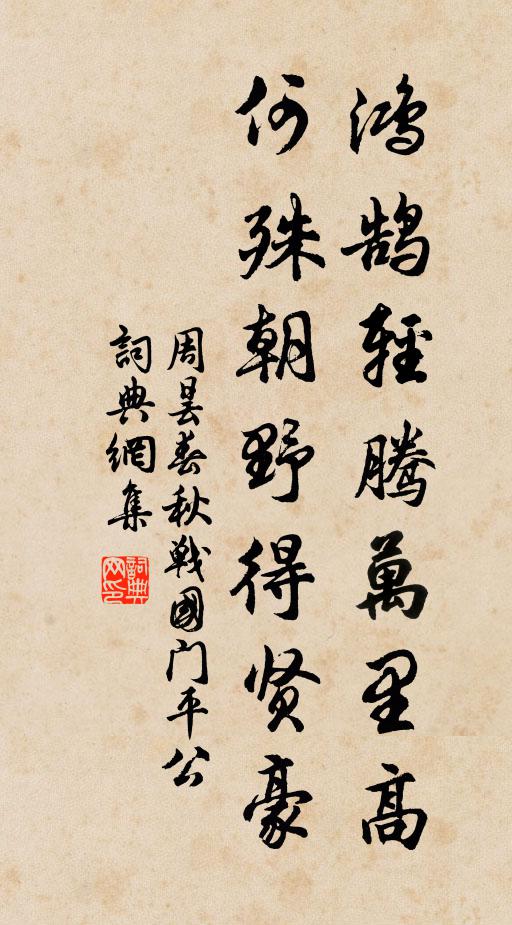 鴻鹄輕騰萬里高
何殊朝野得贤豪
周昙春秋戦國门平公
詞典網集
詞典网印